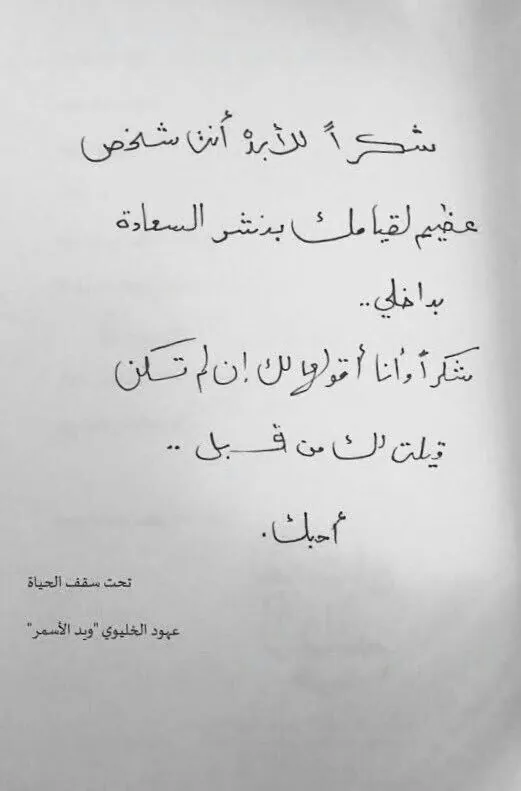 شكراً للأبد أنت شخص
عظيم لقيامك بنشر السعادة
بداخلي..
شكراً وأنا أقولها لك إن لم تكن
قيلت لك من قبل ..
أحبك.
تحت سقف الحياة
عهود الخليوي "وبد الأسمر"